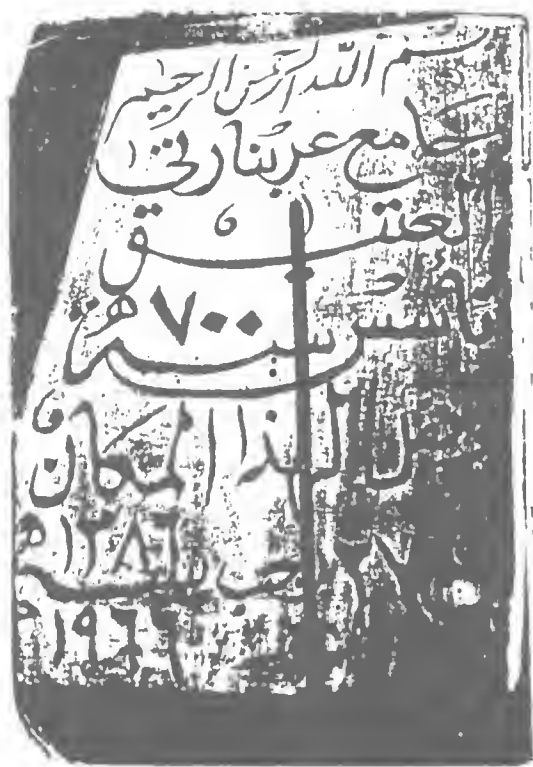 بسم الله الرحمن الرحيم
جامع عربنارتي
العتيق
تأسس سنة ٧٠٠ هـ
المكان
١٣٨٦ هـ
١٩٦٦ م